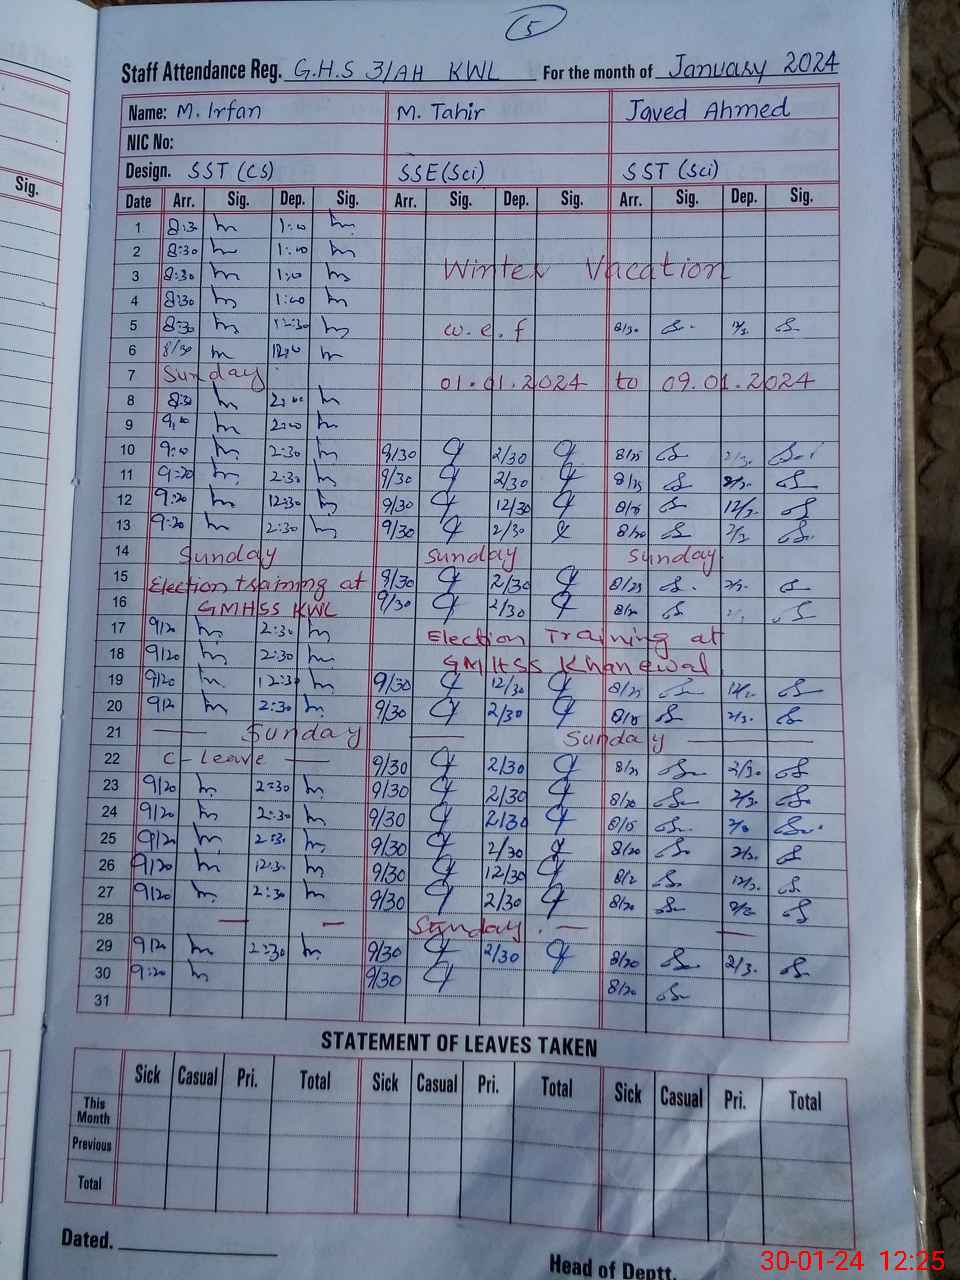 5
Staff Attendance Reg. G.H.S 3/AH KWL For the month of January 2024
Sig.
Name: M. Irfan M. Tahir Javed Ahmed
NIC No:
Design. SST (CS) SSE(Sci) SST (Sci)
Date Arr. Sig. Dep. Sig. Arr. Sig. Dep. Sig. Arr. Sig. Dep. Sig.
1 8:3 1:00
2 8:30 1:00
3 8:30 1:00 Winter Vacation
4 8:30 1:00
5 8:30 12:30 w.e.f 8/30
6 8/30 12:00
7 Sunday 01.01.2024 to 09.01.2024
8 8:30 2:00
9 9:00 2:00
10 9:00 2:30 9/30 2/30 8/25
11 9:20 2:30 9/30 2/30 8/25
12 9:20 12:30 9/30 12/30
13 9:20 2:30 9/30 2/30 8/20
14 Sunday Sunday Sunday
15 Election training at 9/30 2/30 8/25
16 GMHSS KWL 9/30 2/30 8/20
17 9/20 2:30 Election Training at
18 9/20 2:30 GMHSS Khanewal
19 9/20 12:30 9/30 12/30 8/25
20 9/2 2:30 9/30 2/30
21 Sunday Sunday
22 C-leave 9/30 2/30 2/30
23 9/20 2:30 9/30 2/30 8/20
24 9/20 2:30 9/30 2/30 8/15
25 9/20 2:30 9/30 2/30 8/20
26 9/20 12:30 9/30 12/30 8/2
27 9/20 2:30 9/30 2/30 8/20
28 Sunday
29 9/20 2:30 9/30 2/30 8/20 2/3.
30 9:20 9/30 8/20
31
STATEMENT OF LEAVES TAKEN
Sick Casual Pri. Total Sick Casual Pri. Total Sick Casual Pri. Total
This Month
Previous
Total
Dated.
Head of Deptt.
30-01-24 12:25